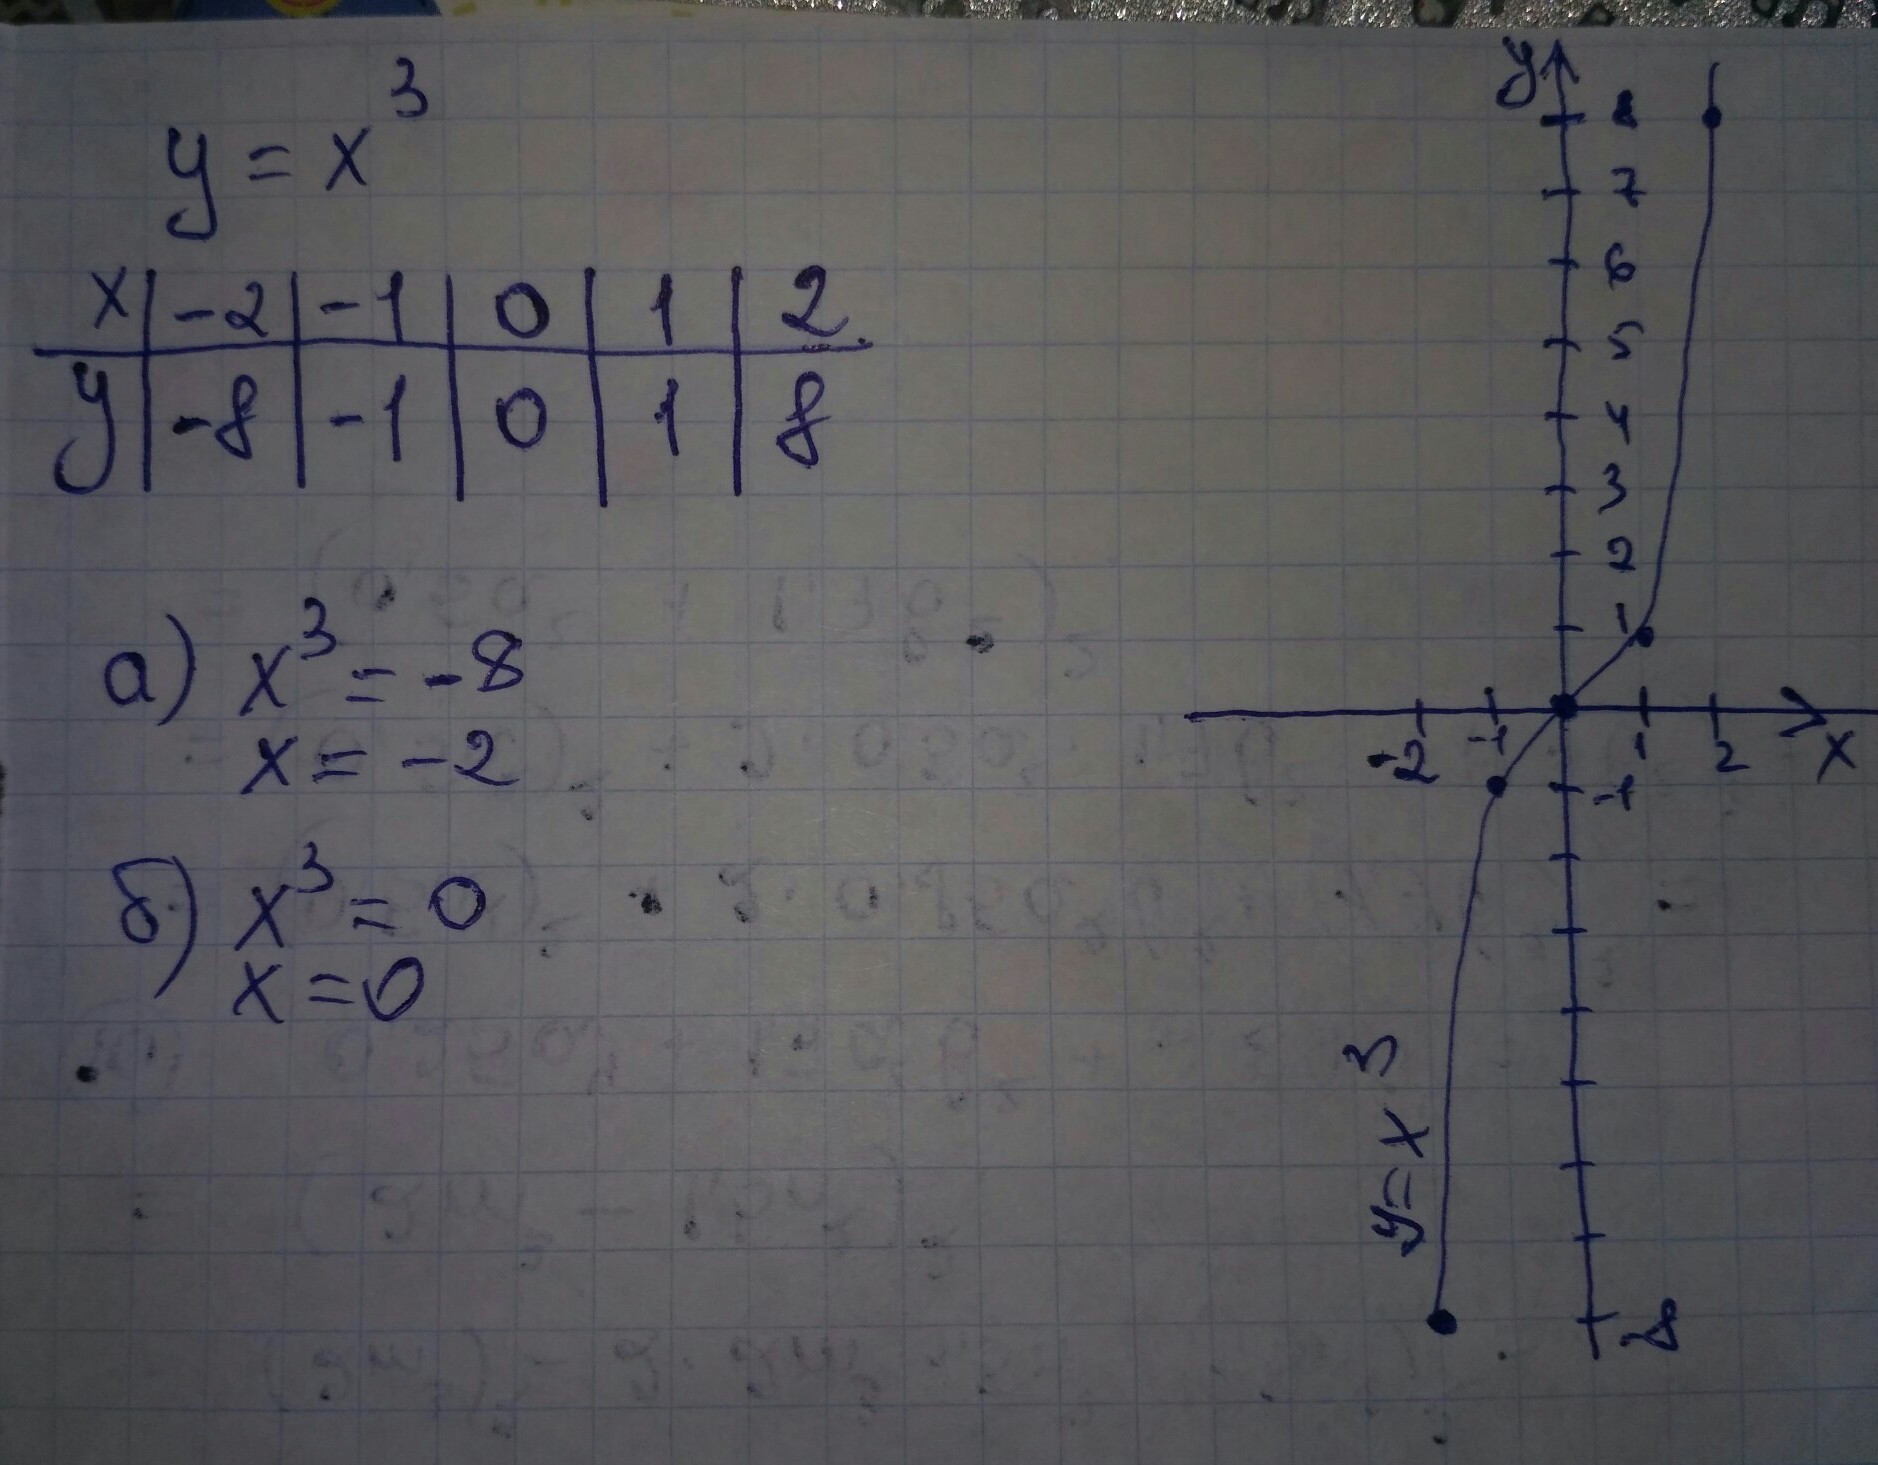 y = x³
x | -2 | -1 | 0 | 1 | 2
y | -8 | -1 | 0 | 1 | 8
а) x³ = -8
x = -2
б) x³ = 0
x = 0
y
8
7
6
5
4
3
2
1
-2 -1 1 2 x
-1
y = x³
-8